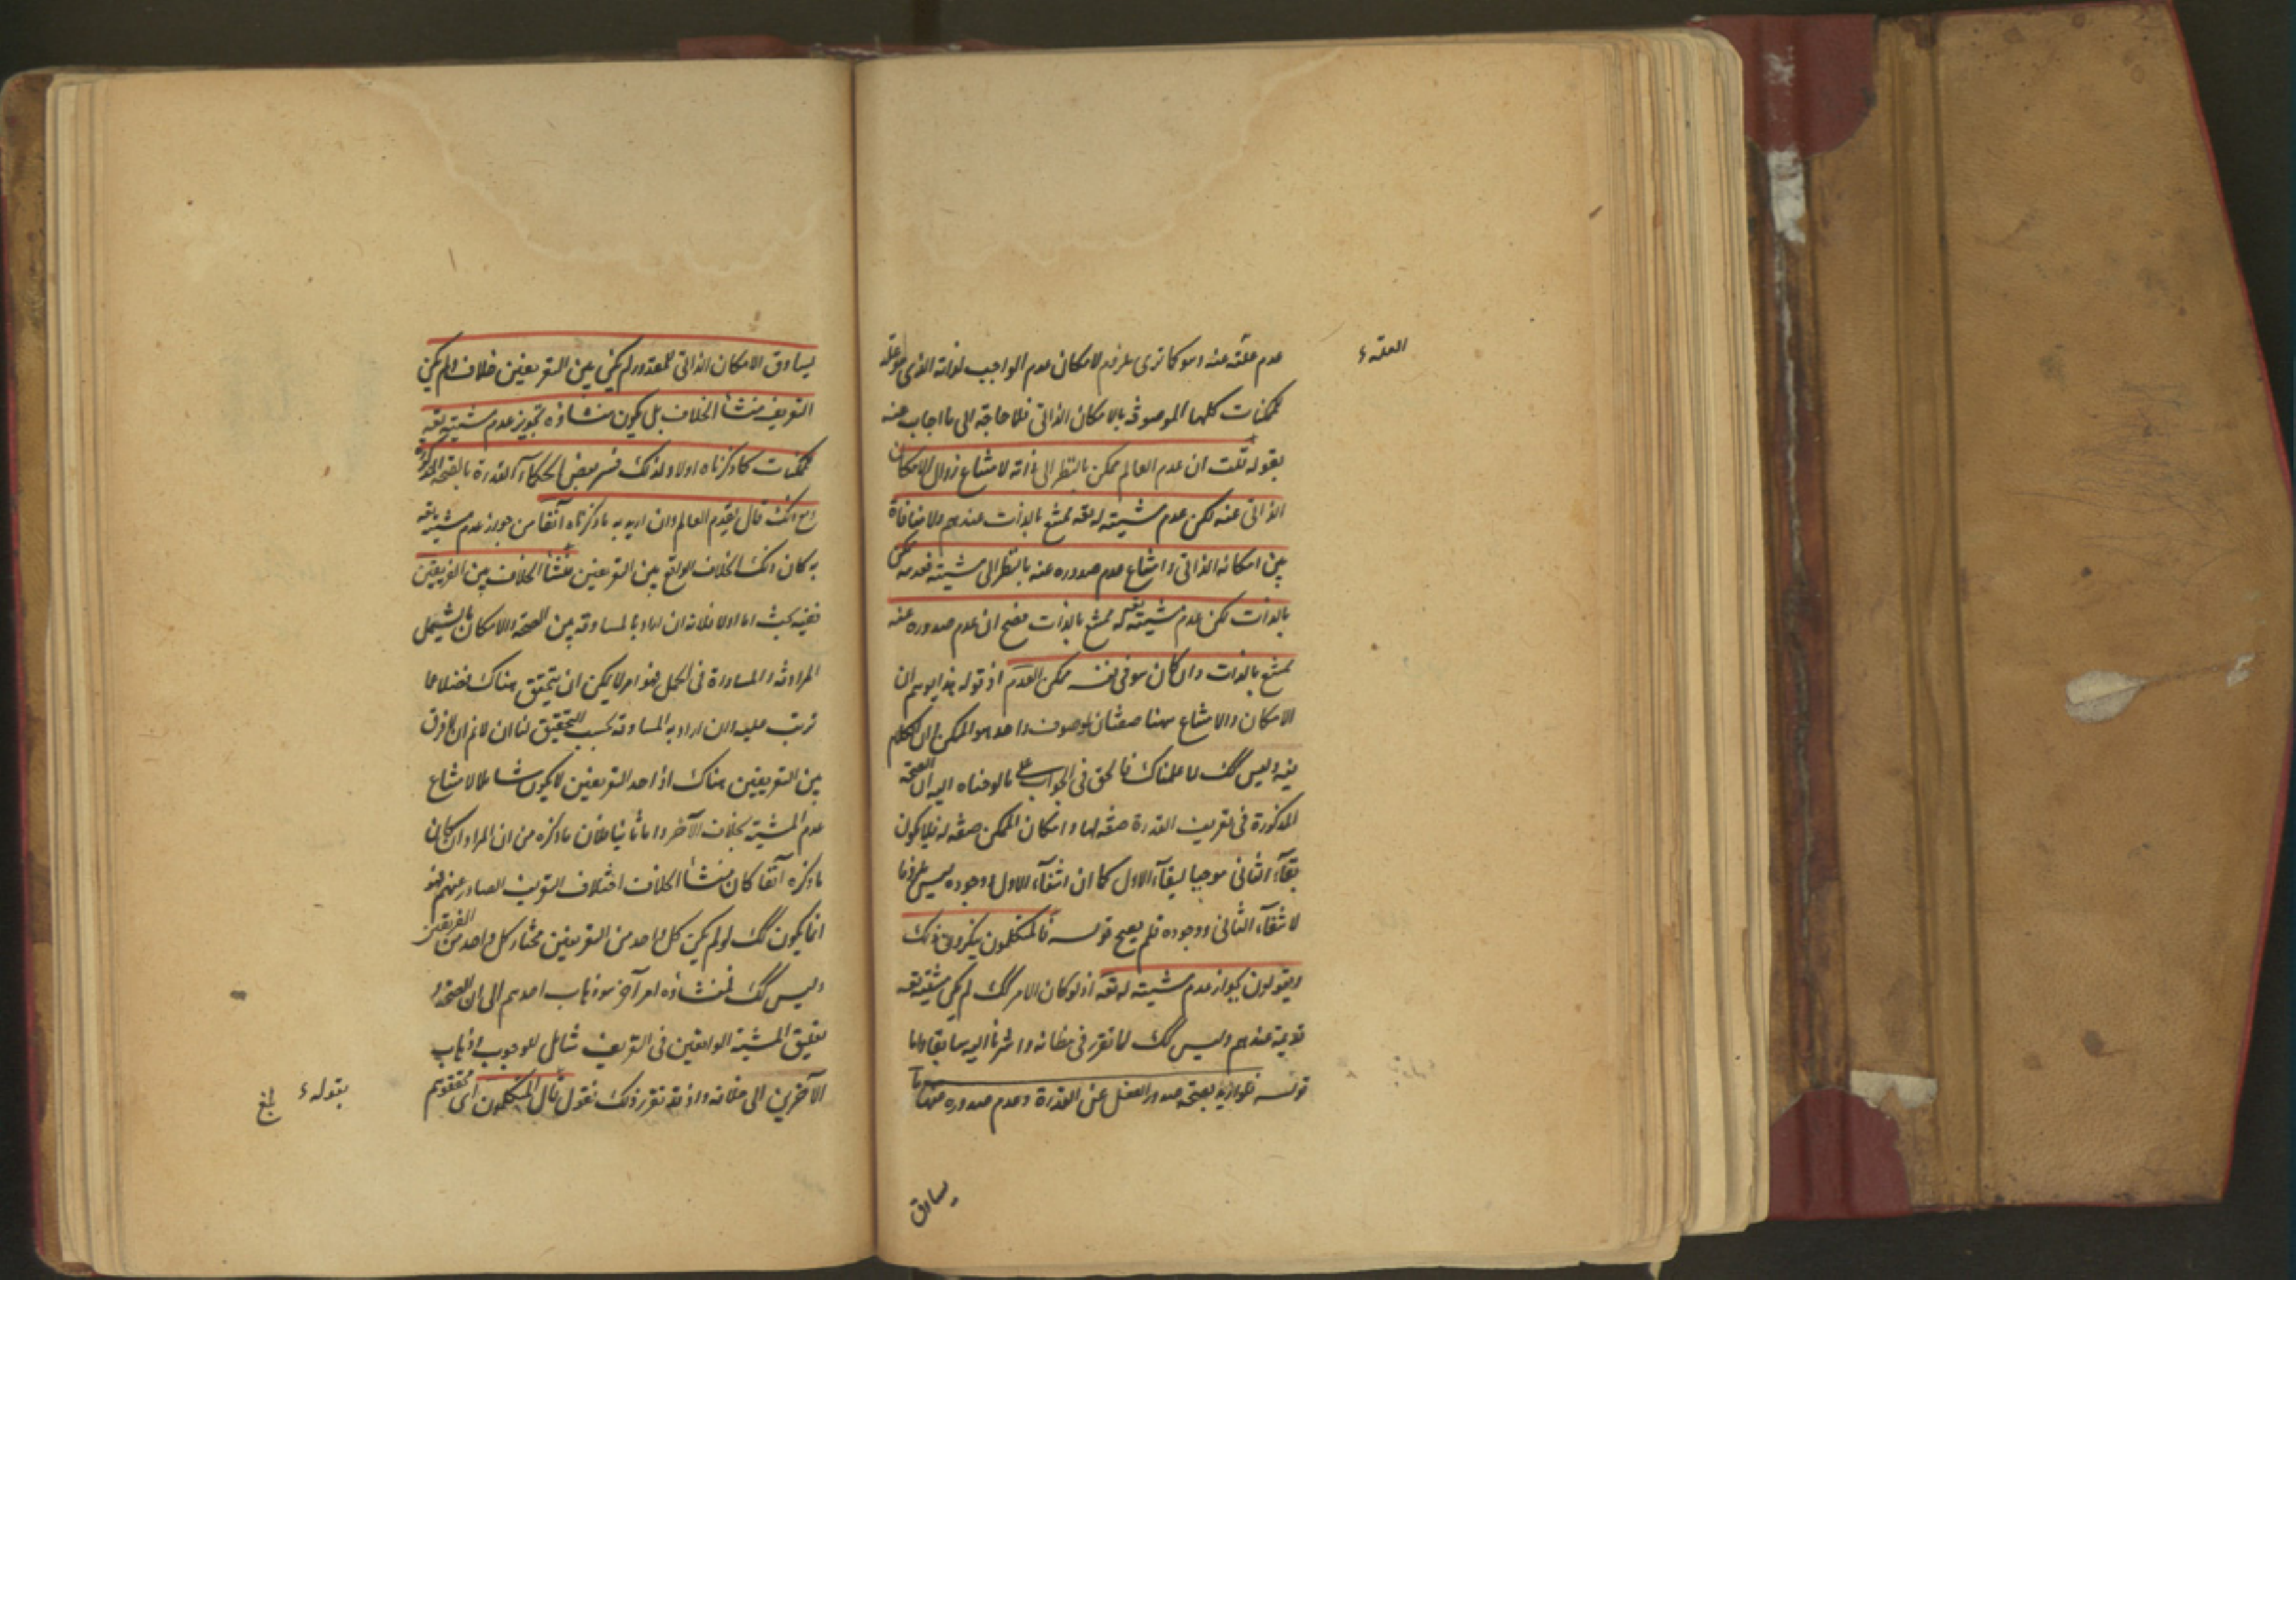 عدم علته عنه وهو كما ترى ملزوم لامكان عدم الواجب لذاته الذى هو علة
للممكنات كلها الموصوفة بالامكان الذاتى فلا حاجة الى ما اجاب عنه
بقوله قلت ان عدم العالم ممكن بالنظر الى ذاته لامتناع زوال الامكان
الذاتى عنه لكن عدم مشيته له تعه ممتنع بالذات عندهم ولا منافاة
بين امكانه الذاتى وامتناع عدم صدوره عنه بالنظر الى مشيته فعدمه ممكن
بالذات لكن عدم مشيته تعه له ممتنع بالذات فصح ان عدم صدوره عنه
ممتنع بالذات وان كان هو فى نفسه ممكن العدم اذ قوله هذا يوهم ان
الامكان والامتناع ههنا صفتان لموصوف واحد هو الممكن الكلام
فيه وليس كك لما علمناك فالحق فى الجواب على ما لوحناه اليه ان الصحة
المذكورة فى تعريف القدرة صفة لها وامكان الممكن صفة له فلا يكون
بقآء الثانى موجبا لبقآء الاول كما ان انتفآء الاول ووجوده ليس ملزوما
لانتفآء الثانى ووجوده فلم يصح قوله فالمتكلمون ينكرون ذلك
ويقولون بجواز عدم مشيته له تعه اذ لو كان الامر كك لم يكن مشيته تعه
قديمة عندهم وليس كك لما تقرر فى مظانه واشرنا اليه سابقا واما
قوله فلو اريد بصحة صدور الفعل عن القدرة وعدم صدوره عنها ما
يساوق
العلة
يساوق الامكان الذاتى للمقدور لم يكن بين التعريفين خلاف لم يكن
التعريف منشأ الخلاف بل يكون منشاؤه تجويز عدم مشيته تعه
للممكنات كما ذكرناه اولا ولذلك فسر بعض الحكمآء القدرة بالصحة المذكورة
مع انك قال بقدم العالم وان اريد به ما ذكرناه آنفا من جواز عدم مشيته تعه
به كان ذلك الخلاف الواقع بين التعريفين منشأ الخلاف بين الفريقين
ففيه بحث اما اولا فلانه ان اراد بالمساوقة بين الصحة والامكان ما يشمل
المرادفة والمساواة فى الحمل فهو امر لا يمكن ان يتحقق هناك فضلا عما
ترتب عليه وان اراد به المساوقة بحسب التحقيق لنا ان لا نم ان لا فرق
بين التعريفين هناك اذ احد التعريفين لا يكون شاملا لامتناع
عدم المشية بخلاف الآخر واما ثانيا فلان ما ذكره من ان المراد ان كان
ما ذكره آنفا كان منشأ الخلاف اختلاف التعريف الصادر عنهم فهو
انما يكون كك لو لم يكن كل واحد من التعريفين مختار كل واحد من الفريقين
وليس كك فمنشاؤه امر آخر هو ذهاب احدهم الى ان الصحة و
تعليق المشية الواقعين فى التعريف شامل للوجوب وذهاب
الآخرين الى خلافه واذ قد تقرر ذلك فنقول قال المتكلمون اى محققوهم
بقوله
بلغ